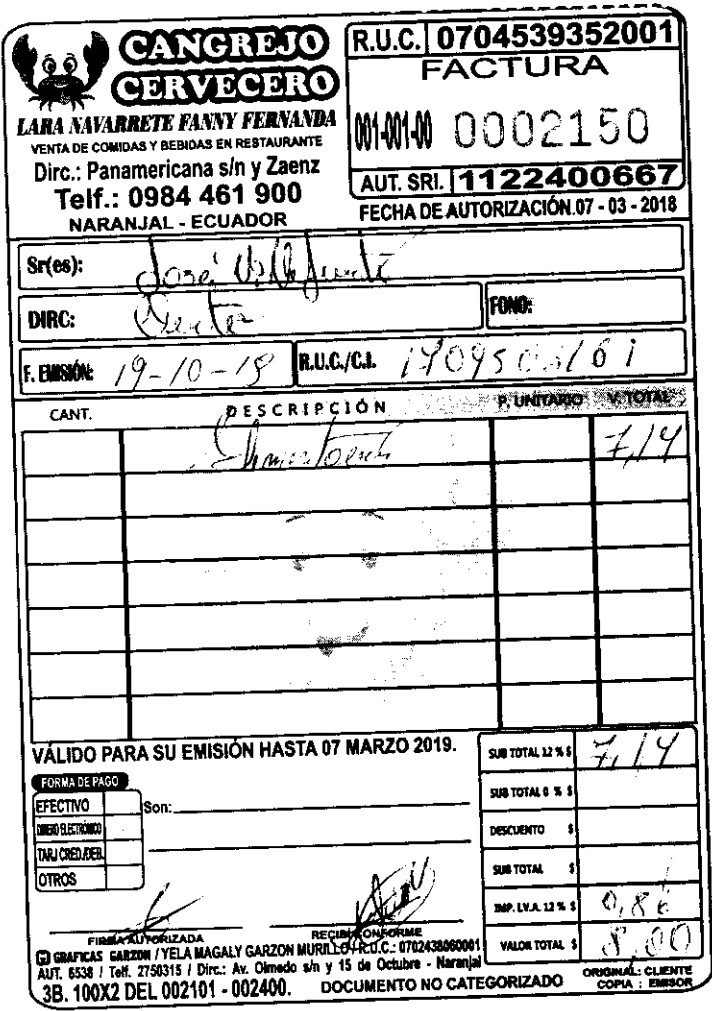 CANGREJO
CERVECERO
LARA NAVARRETE FANNY FERNANDA
VENTA DE COMIDAS Y BEBIDAS EN RESTAURANTE
Dirc.: Panamericana s/n y Zaenz
Telf.: 0984 461 900
NARANJAL - ECUADOR
R.U.C. 0704539352001
FACTURA
001-001-00 0002150
AUT. SRI. 1122400667
FECHA DE AUTORIZACIÓN.07 - 03 - 2018
Sr(es): José
DIRC:
FONO:
F. EMISIÓN: 19-10-18 R.U.C./C.I.
CANT. DESCRIPCIÓN P. UNITARIO V. TOTAL
7,14
VÁLIDO PARA SU EMISIÓN HASTA 07 MARZO 2019.
FORMA DE PAGO
EFECTIVO
DINERO ELECTRÓNICO
TARJ CRED./DEB.
OTROS
Son:
SUB TOTAL 12 % $ 7,14
SUB TOTAL 0 % $
DESCUENTO $
SUB TOTAL $
IMP. I.V.A. 12 % $ 0,86
VALOR TOTAL $ 8,00
FIRMA AUTORIZADA
RECIBI CONFORME
GRAFICAS GARZON / YELA MAGALY GARZON MURILLO / R.U.C.: 0702438060001
AUT. 6538 / Telf. 2750315 / Dirc.: Av. Olmedo s/n y 15 de Octubre - Naranjal
3B. 100X2 DEL 002101 - 002400. DOCUMENTO NO CATEGORIZADO
ORIGINAL: CLIENTE
COPIA : EMISOR